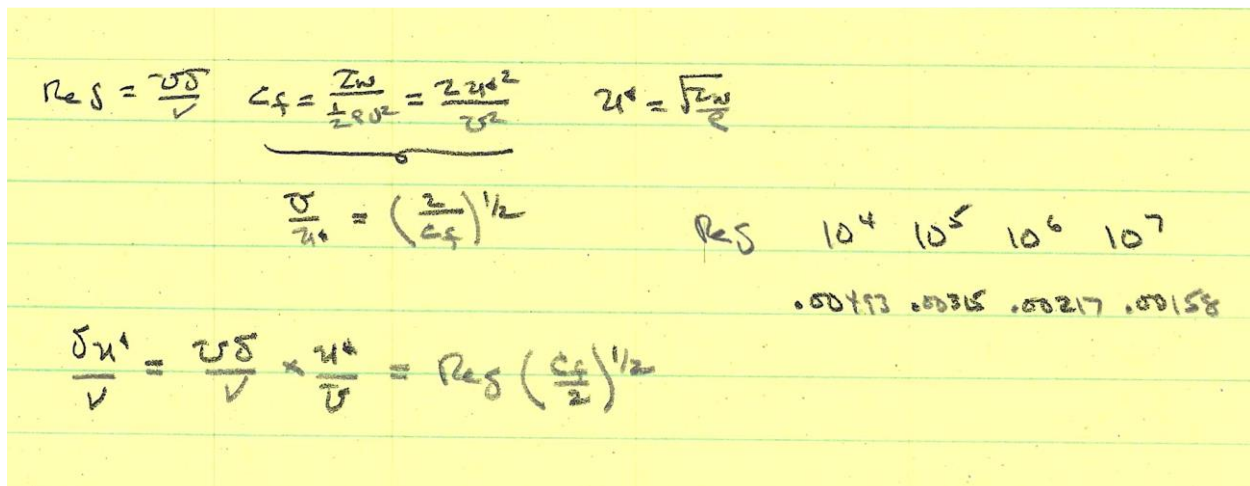 Re δ = Uδ/ν   c_f = τw / (½ρU²) = 2u*²/U²   u* = √(τw/ρ)
U/u* = (2/c_f)^1/2
Re δ   10⁴   10⁵   10⁶   10⁷
.00493   .00315   .00217   .00158
δu*/ν = Uδ/ν × u*/U = Re δ (c_f/2)^1/2